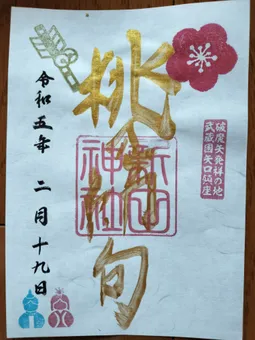 破魔矢発祥の地
武蔵国矢口鎮座
桃の節句
新田
神社
令和五年 二月十九日